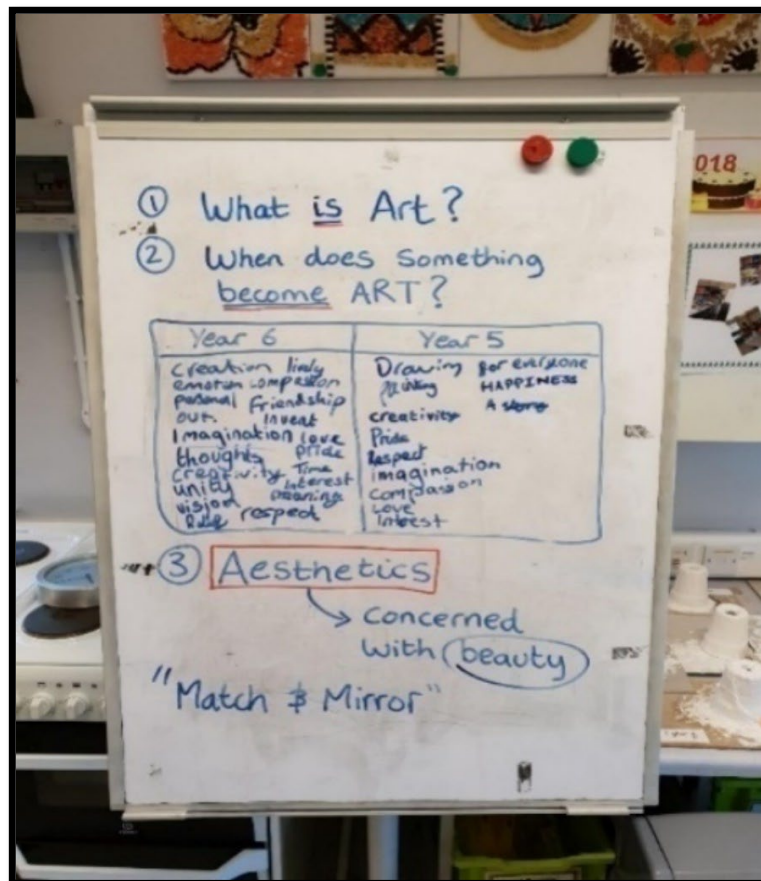 2018
① What is Art?
② When does something
become ART?
Year 6
creation lively
emotion compassion
personal Friendship
out. Invent
Imagination love
thoughts pride
creativity Time
unity Interest
vision meaning
respect
Year 5
Drawing for everyone
HAPPINESS
creativity A story
Pride
Respect
imagination
compassion
Love
Interest
③ Aesthetics
concerned
with beauty
"Match & Mirror"